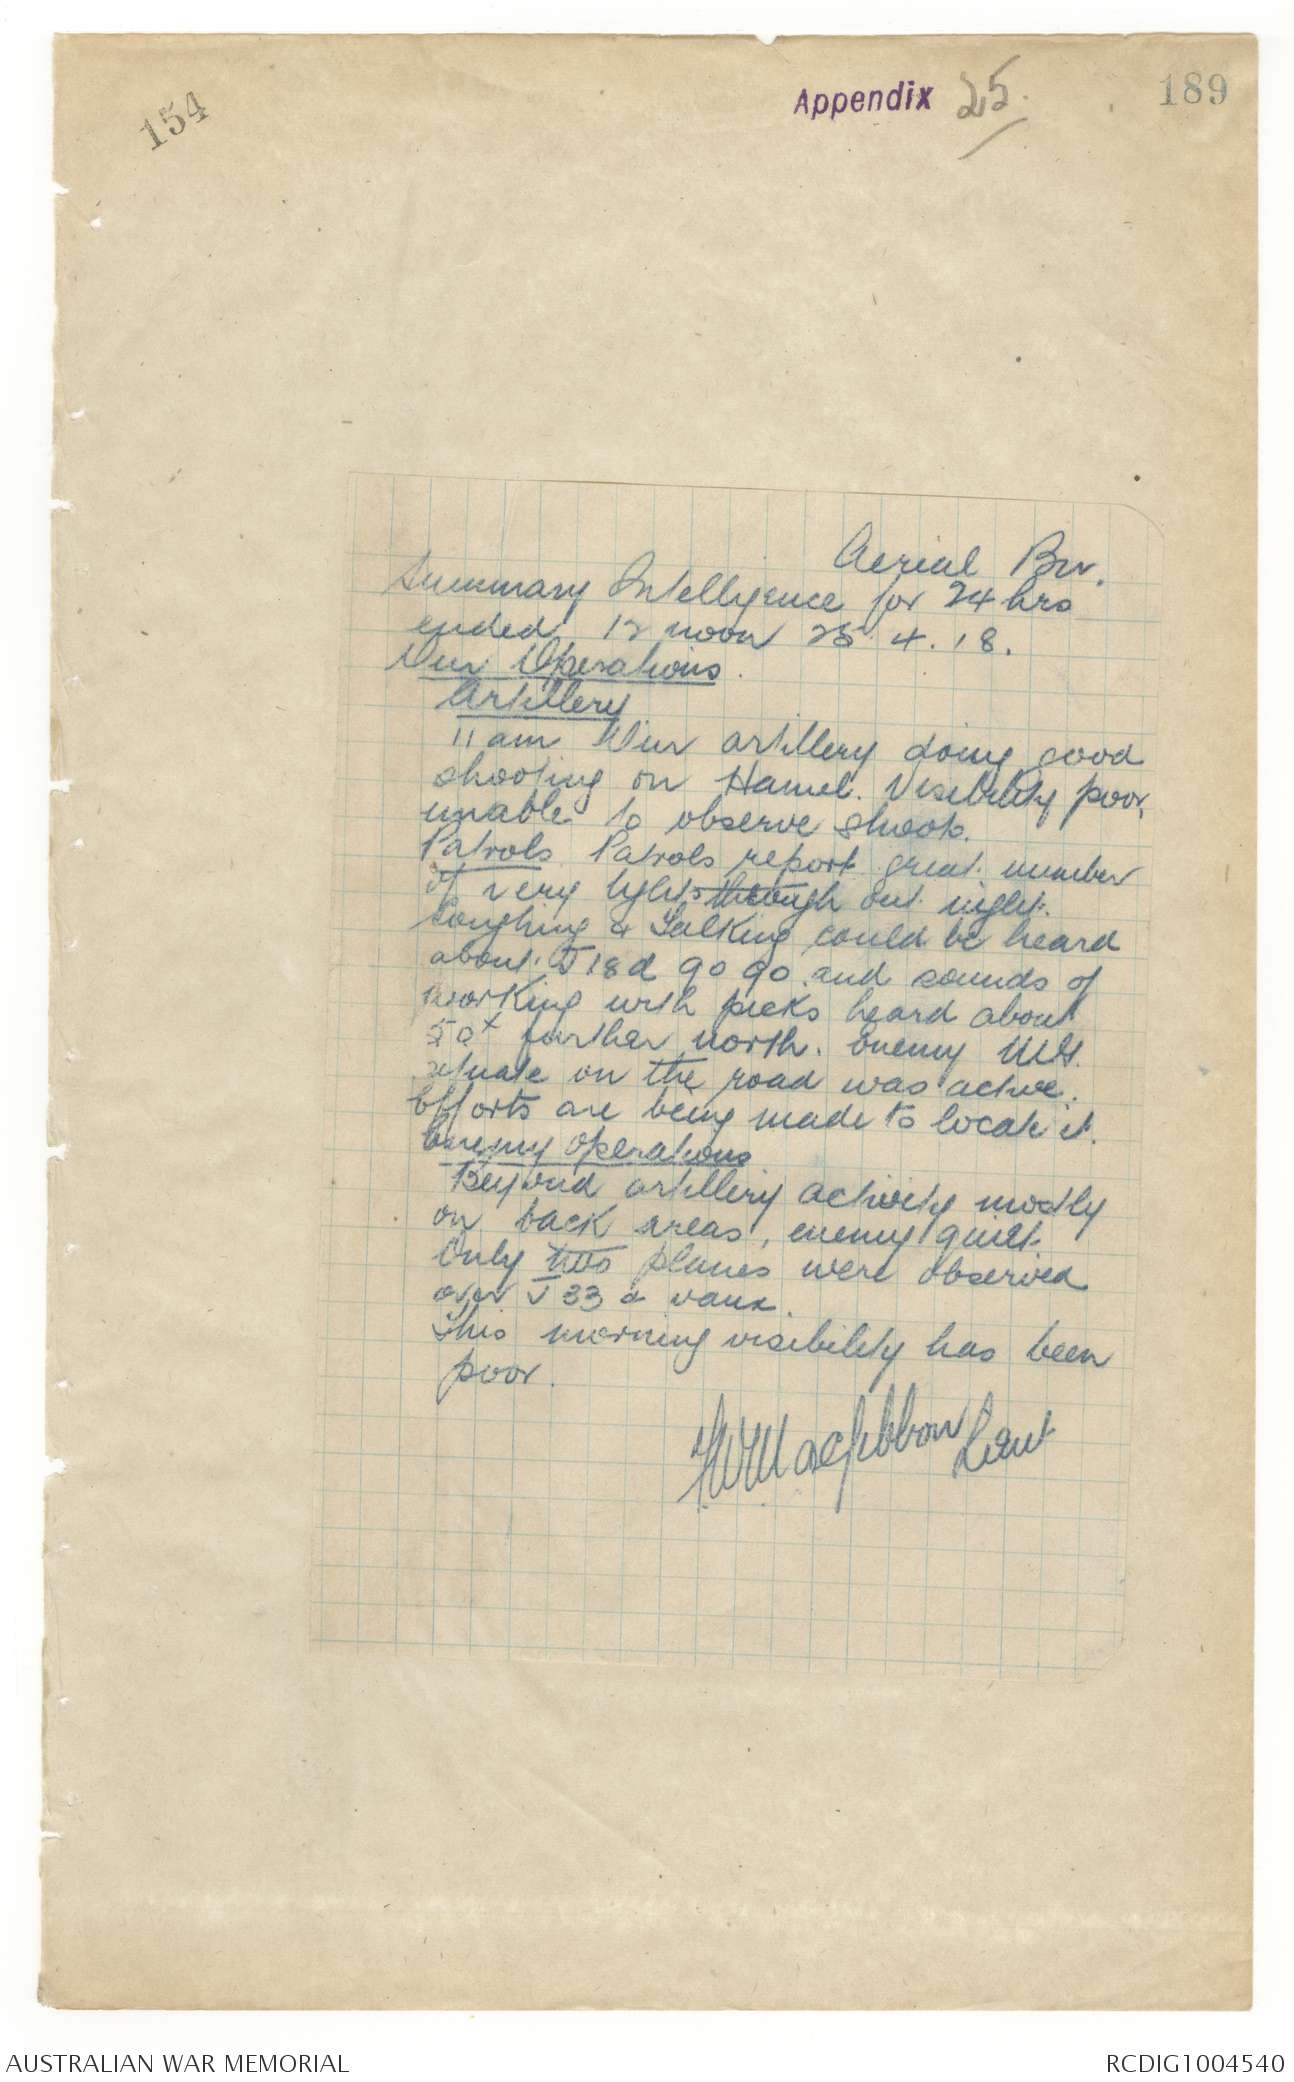 154
Appendix 25.
189
Aerial Bn.
Summary Intelligence for 24 hrs
ended 12 noon 25.4.18.
Our Operations.
Artillery
11 am Our artillery doing good
shooting on Hamel. Visibility poor,
unable to observe shoots.
Patrols Patrols report great number
of very lights through out night.
Coughing & Talking could be heard
about J18d 90 90 and sounds of
working with picks heard about
50x further north. Enemy M.G.
situate on the road was active.
Efforts are being made to locate it.
Enemy Operations
Beyond artillery activity mostly
on back areas, enemy quiet.
Only two planes were observed
over J 33 & Vaux.
This morning visibility has been
poor.
MacGibbon Lieut
AUSTRALIAN WAR MEMORIAL
RCDIG1004540